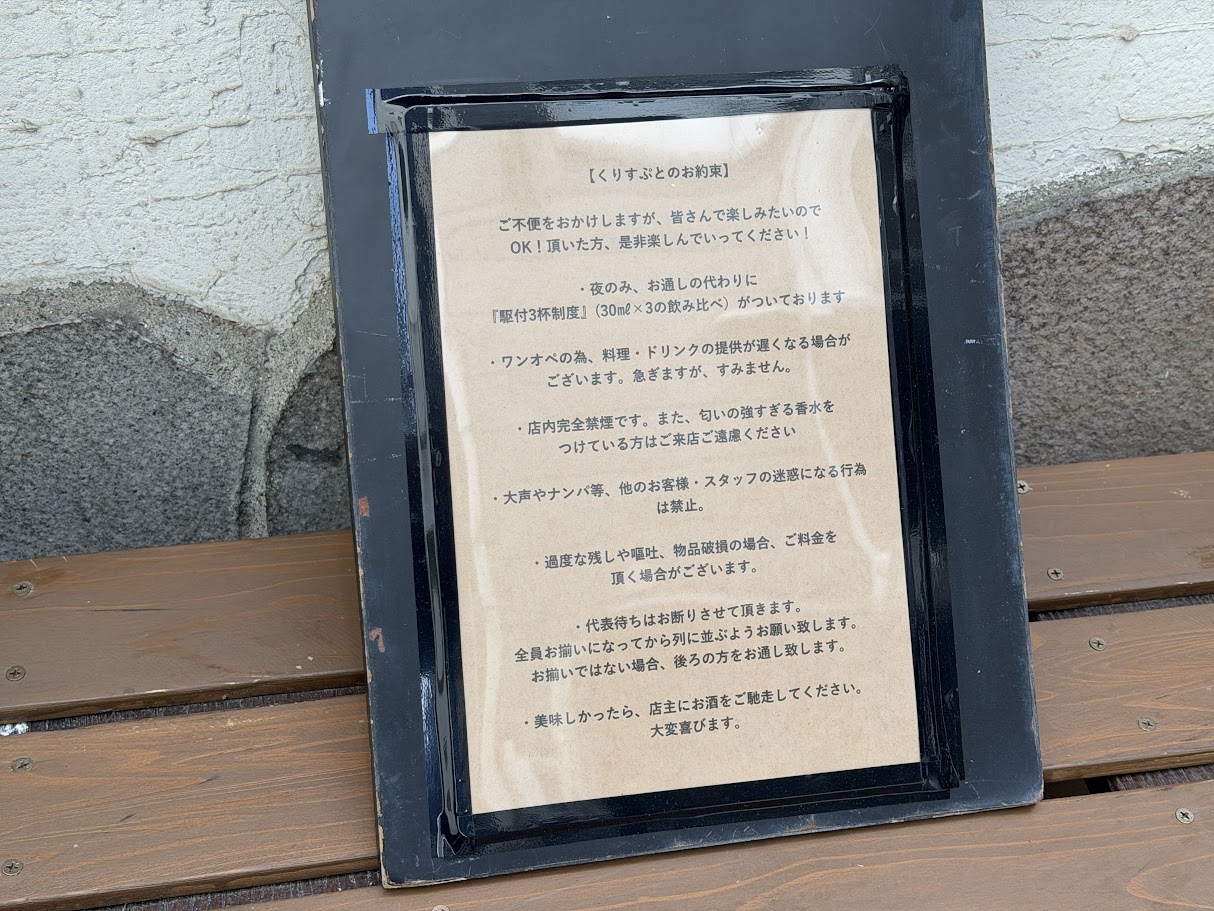 【くりすぷとのお約束】
ご不便をおかけしますが、皆さんで楽しみたいので
OK！頂いた方、是非楽しんでいってください！
・夜のみ、お通しの代わりに
『駆付3杯制度』（30㎖×3の飲み比べ）がついております
・ワンオペの為、料理・ドリンクの提供が遅くなる場合が
ございます。急ぎますが、すみません。
・店内完全禁煙です。また、匂いの強すぎる香水を
つけている方はご来店ご遠慮ください
・大声やナンパ等、他のお客様・スタッフの迷惑になる行為
は禁止。
・過度な残しや嘔吐、物品破損の場合、ご料金を
頂く場合がございます。
・代表待ちはお断りさせて頂きます。
全員お揃いになってから列に並ぶようお願い致します。
お揃いではない場合、後ろの方をお通し致します。
・美味しかったら、店主にお酒をご馳走してください。
大変喜びます。